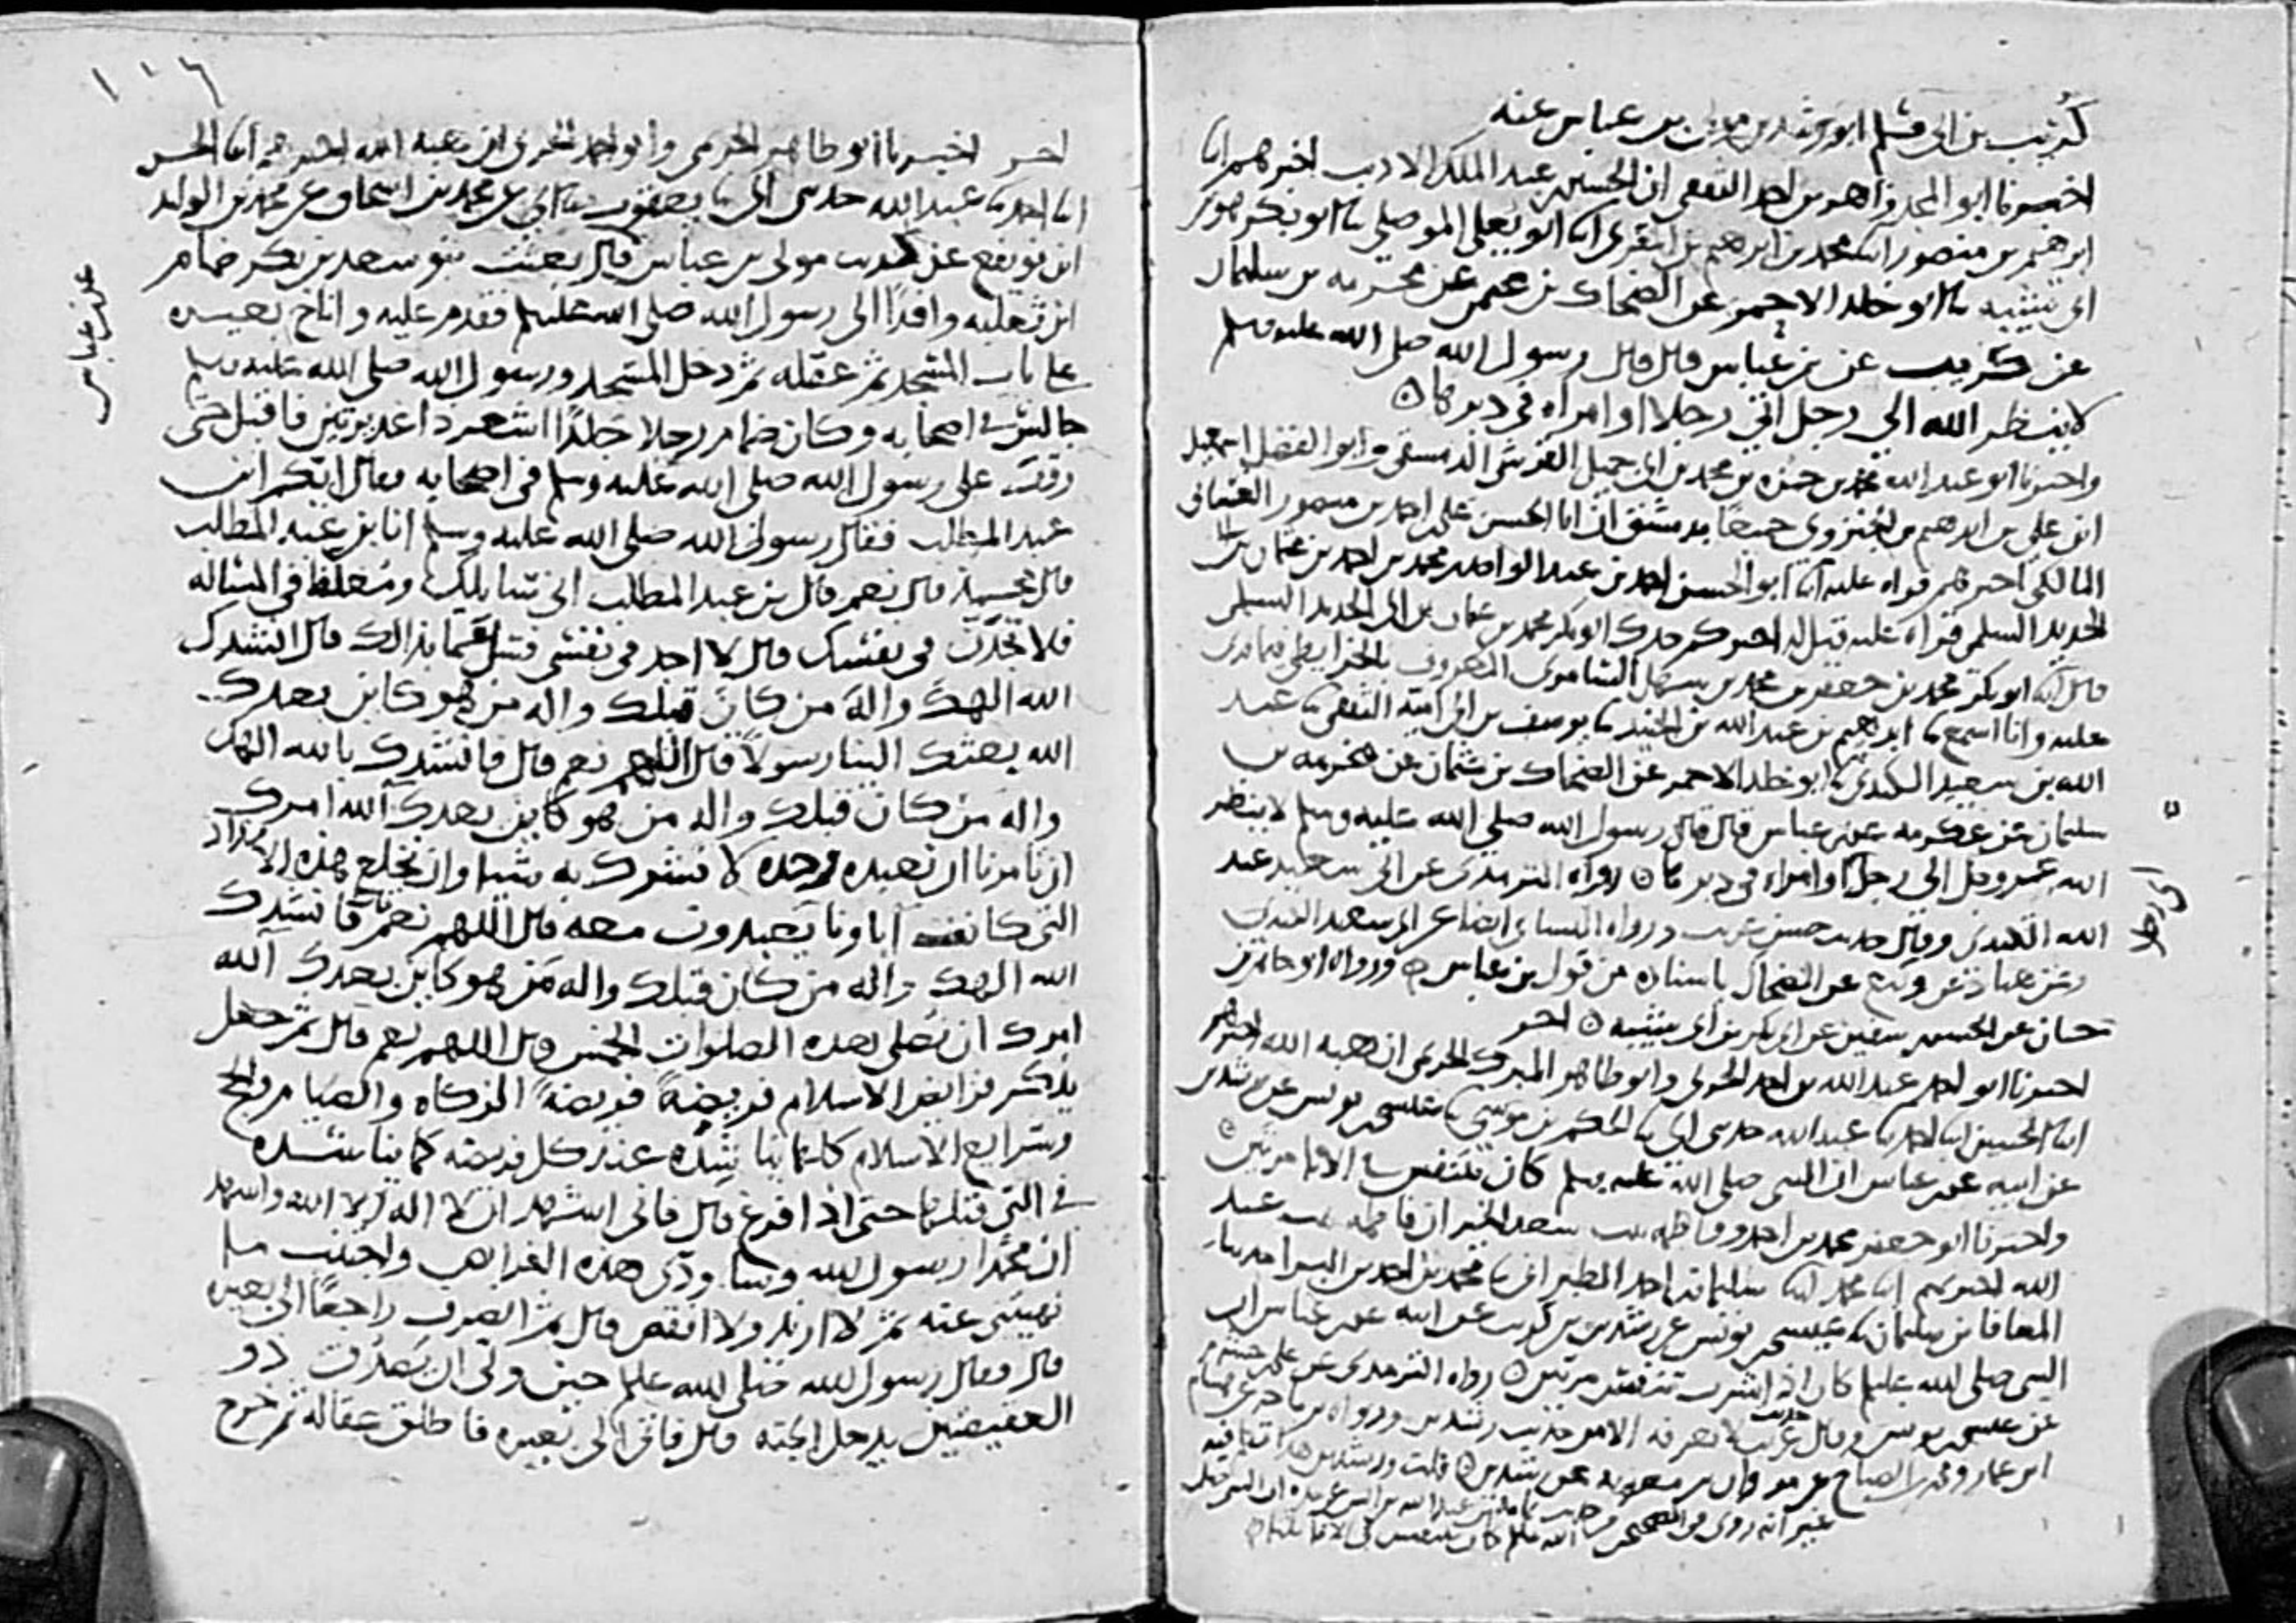 كريب بن ابي مسلم ابو رشدين مولى بن عباس عنه
اخبرنا ابو المجد زاهر بن احمد الثقفي ان الحسين بن عبد الملك الاديب اخبرهم ابنا
ابرهيم بن منصور ابنا محمد بن ابرهيم بن المقرئ ابنا ابو يعلى الموصلي ثنا ابو بكر هو بن
ابي شيبه ثنا ابو خلد الاحمر عن الضحاك بن عثمن عن مخرمه بن سليمان
عن كريب عن بن عباس قال قال رسول الله صلى الله عليه وسلم
لا ينظر الله الى رجل اتى رجلا او امراه في دبرها
واخبرنا ابو عبد الله محمد بن حمزه بن محمد بن ابي جميل القرشي الدمشقي وابو الفضل اسمعيل
ابن علي بن ابرهيم الجنزوي جميعا بدمشق ان ابا الحسن علي بن احمد بن منصور الغساني
المالكي اخبرهم قراه عليه ابنا ابو الحسن احمد بن عبد الواحد بن محمد بن احمد بن عثمان بن ابي
الحديد السلمي قراه عليه قيل له اخبركم جدك ابو بكر محمد بن احمد بن عثمان بن ابي الحديد السلمي
قال ابنا ابو بكر محمد بن جعفر بن محمد بن سهل السامري المعروف بالخرايطي فيما قرئ
عليه وانا اسمع ثنا ابرهيم بن عبد الله بن الجنيد ثنا يوسف بن ابي اميه الثقفي ثنا عبد
الله بن سعيد الكندي ثنا ابو خلد الاحمر عن الضحاك بن عثمان عن مخرمه بن
سليمان عن عكرمه عن بن عباس قال قال رسول الله صلى الله عليه وسلم لا ينظر
الله عز وجل الى رجل اتى رجلا او امراه في دبرها رواه الترمذي عن ابي سعيد عبد
الله الكندي وقال حديث حسن غريب ورواه النسائي ايضا عن ابي سعيد الكندي
وعن هناد عن وكيع عن الضحاك باسناده من قول بن عباس ورواه ابو حاتم بن
حبان عن الحسن بن سفين عن ابي بكر بن ابي شيبه اخر
اخبرنا ابو احمد عبد الله بن احمد الحربي وابو طاهر المبرك الحربي ان هبه الله اخبرهم
ابنا الحسن ابنا احمد ثنا عبد الله حدثني ابي ثنا الحكم بن موسى ثنا عيسى بن يونس عن رشدين
عن ابيه عن بن عباس ان النبي صلى الله عليه وسلم كان يتنفس في الانا مرتين
واخبرنا ابو جعفر محمد بن احمد وفاطمه بنت سعد الخير ان فاطمه بنت عبد
الله اخبرتهم ابنا محمد ابنا سليمان بن احمد الطبراني ثنا محمد بن احمد بن البراء ثنا
المعافا بن سليمان ثنا عيسى بن يونس عن رشدين بن كريب عن ابيه عن بن عباس ان
النبي صلى الله عليه وسلم كان اذا شرب تنفس مرتين رواه الترمذي عن علي بن خشرم
عن عيسى بن يونس وقال غريب لا نعرفه الا من حديث رشدين ورواه بن ماجه عن هشام
ابن عمار ومحمد بن الصباح عن مروان بن معويه عن رشدين قلت ورشدين تكلم فيه
غير انه روي في الصحيحين من حديث ثمامه بن عبد الله بن انس عن جده ان النبي صلى
الله عليه وسلم كان يتنفس في الانا ثلثا
١٠٦
اخر اخبرنا ابو طاهر الحربي وابو احمد الحربي ان هبه الله اخبرهم ابنا الحسن
ابنا احمد ثنا عبد الله حدثني ابي ثنا يعقوب ثنا ابي عن محمد بن اسحاق عن محمد بن الوليد
ابن نويفع عن كريب مولى بن عباس قال بعثت بنو سعد بن بكر ضمام
ابن ثعلبه وافدا الى رسول الله صلى الله عليه وسلم فقدم عليه واناخ بعيره
على باب المسجد ثم عقله ثم دخل المسجد ورسول الله صلى الله عليه وسلم
جالس في اصحابه وكان ضمام رجلا جلدا اشعر ذا غديرتين فاقبل حتى
وقف على رسول الله صلى الله عليه وسلم في اصحابه فقال ايكم ابن
عبد المطلب فقال رسول الله صلى الله عليه وسلم انا بن عبد المطلب
قال محمد قال نعم قال بن عبد المطلب اني سايلك ومغلظ في المسالة
فلا تجدن في نفسك قال لا اجد في نفسي فسل عما بدا لك قال انشدك
الله الهك واله من كان قبلك واله من هو كاين بعدك
الله بعثك الينا رسولا قال اللهم نعم قال فانشدك بالله الهك
واله من كان قبلك واله من هو كاين بعدك آلله امرك
ان تامرنا ان نعبده وحده لا نشرك به شيا وان نخلع هذه الانداد
التي كانت اباونا يعبدون معه قال اللهم نعم قال فانشدك
الله الهك واله من كان قبلك واله من هو كاين بعدك آلله
امرك ان نصلي هذه الصلوات الخمس قال اللهم نعم قال ثم جعل
يذكر فرايض الاسلام فريضة فريضة الزكاه والصيام والحج
وشرايع الاسلام كلها يناشده عند كل فريضه كما يناشده
في التي قبلها حتى اذا فرغ قال فاني اشهد ان لا اله الا الله واشهد
ان محمدا رسول الله وساودي هذه الفرايض واجتنب ما
نهيتني عنه ثم لا ازيد ولا انقص قال ثم انصرف راجعا الى بعيره
قال فقال رسول الله صلى الله عليه وسلم حين ولى ان يصدق ذو
العقيصتين يدخل الجنه قال فاتى الى بعيره فاطلق عقاله ثم خرج
عن بن عباس